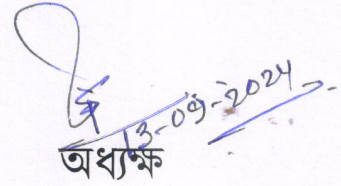 13-09-2024
অধ্যক্ষ